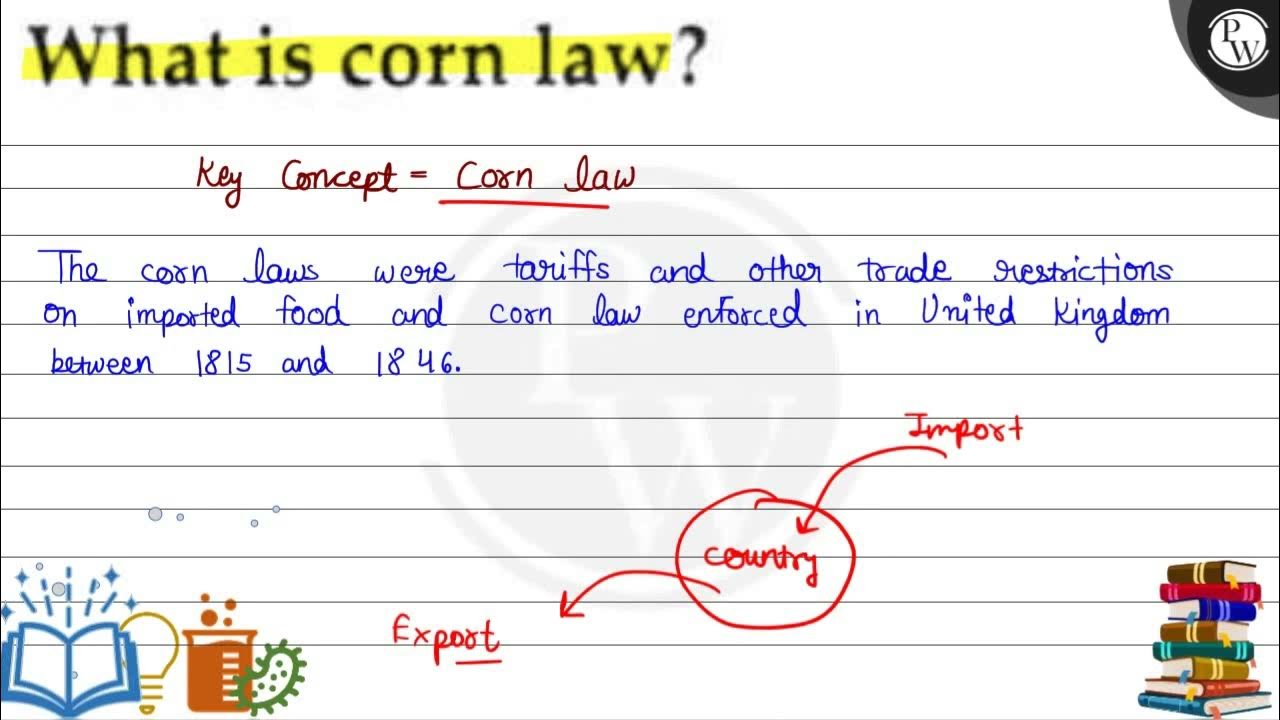 What is corn law?
PW
Key Concept = Corn law
The corn laws were tariffs and other trade restrictions
on imported food and corn law enforced in United Kingdom
between 1815 and 1846.
PW
Import
Country
Export